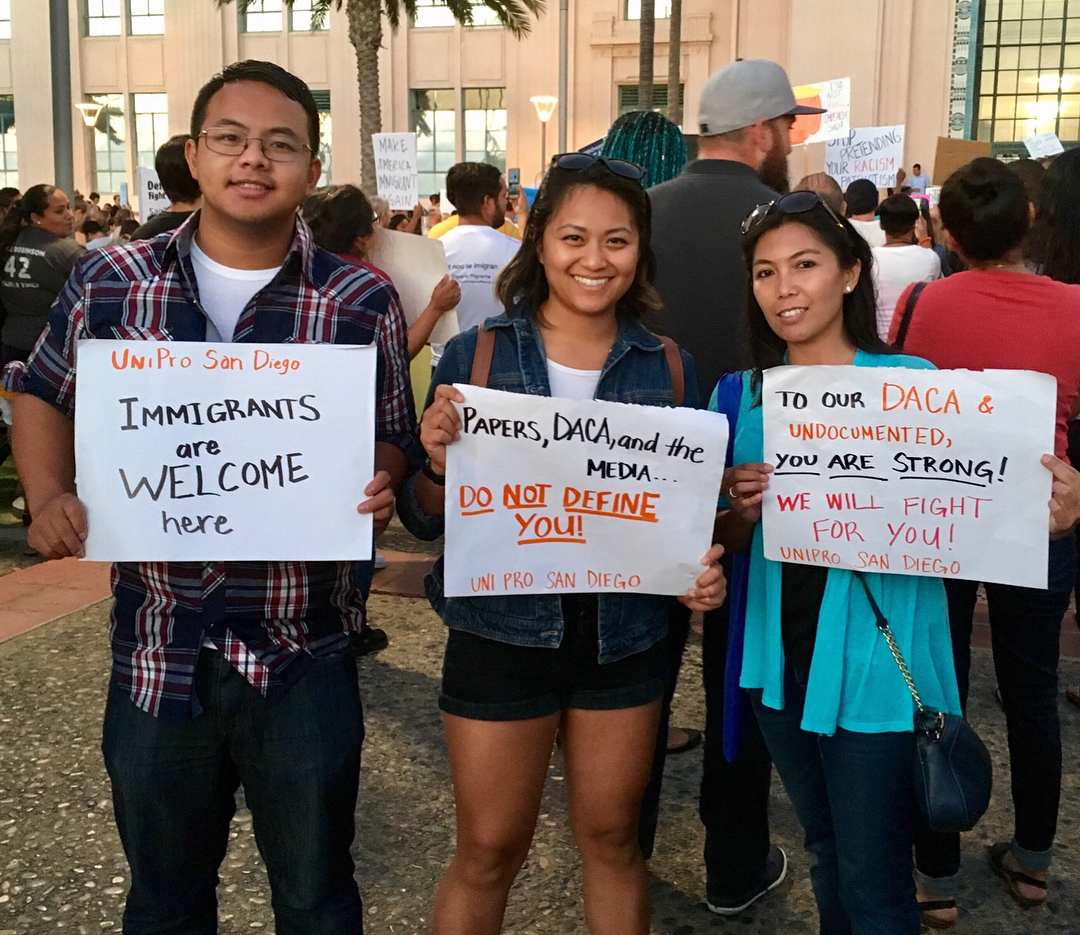 UNIPRO SAN DIEGO
IMMIGRANTS
are
WELCOME
here
PAPERS, DACA, and the
MEDIA...
DO NOT DEFINE
YOU!
UNI PRO SAN DIEGO
TO OUR DACA &
UNDOCUMENTED,
YOU ARE STRONG!
WE WILL FIGHT
FOR YOU!
UNIPRO SAN DIEGO
MAKE
AMERICA
IMMIGRANT
AGAIN
PRETENDING
YOUR RACISM
PATRIOTISM
42